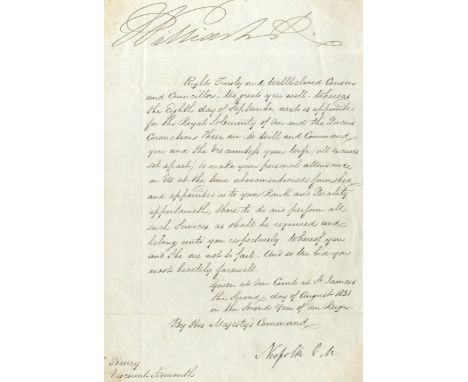 William R.
Right Trusty and Wellbeloved Cousin
and Councillor We greet you well. Whereas
the Eighth day of September next is appointed
for the Royal Solemnity of Our and the Queen's
Coronation These are to Will and Command
you and the Viscountess your Wife, all excuses
set apart, to make your personal attendance
on Us at the time abovementioned furnished
and appointed as to your Rank and Quality
appertaineth, there to do and perform all
such Services as shall be required and
belong unto you respectively. Whereof you
and She are not to fail. And so we bid you
most heartily farewell.
Given at Our Court at St. James's
the Second day of August 1831
in the Second Year of Our Reign
By His Majesty's Command
Norfolk E. M.
Henry
Viscount Sidmouth